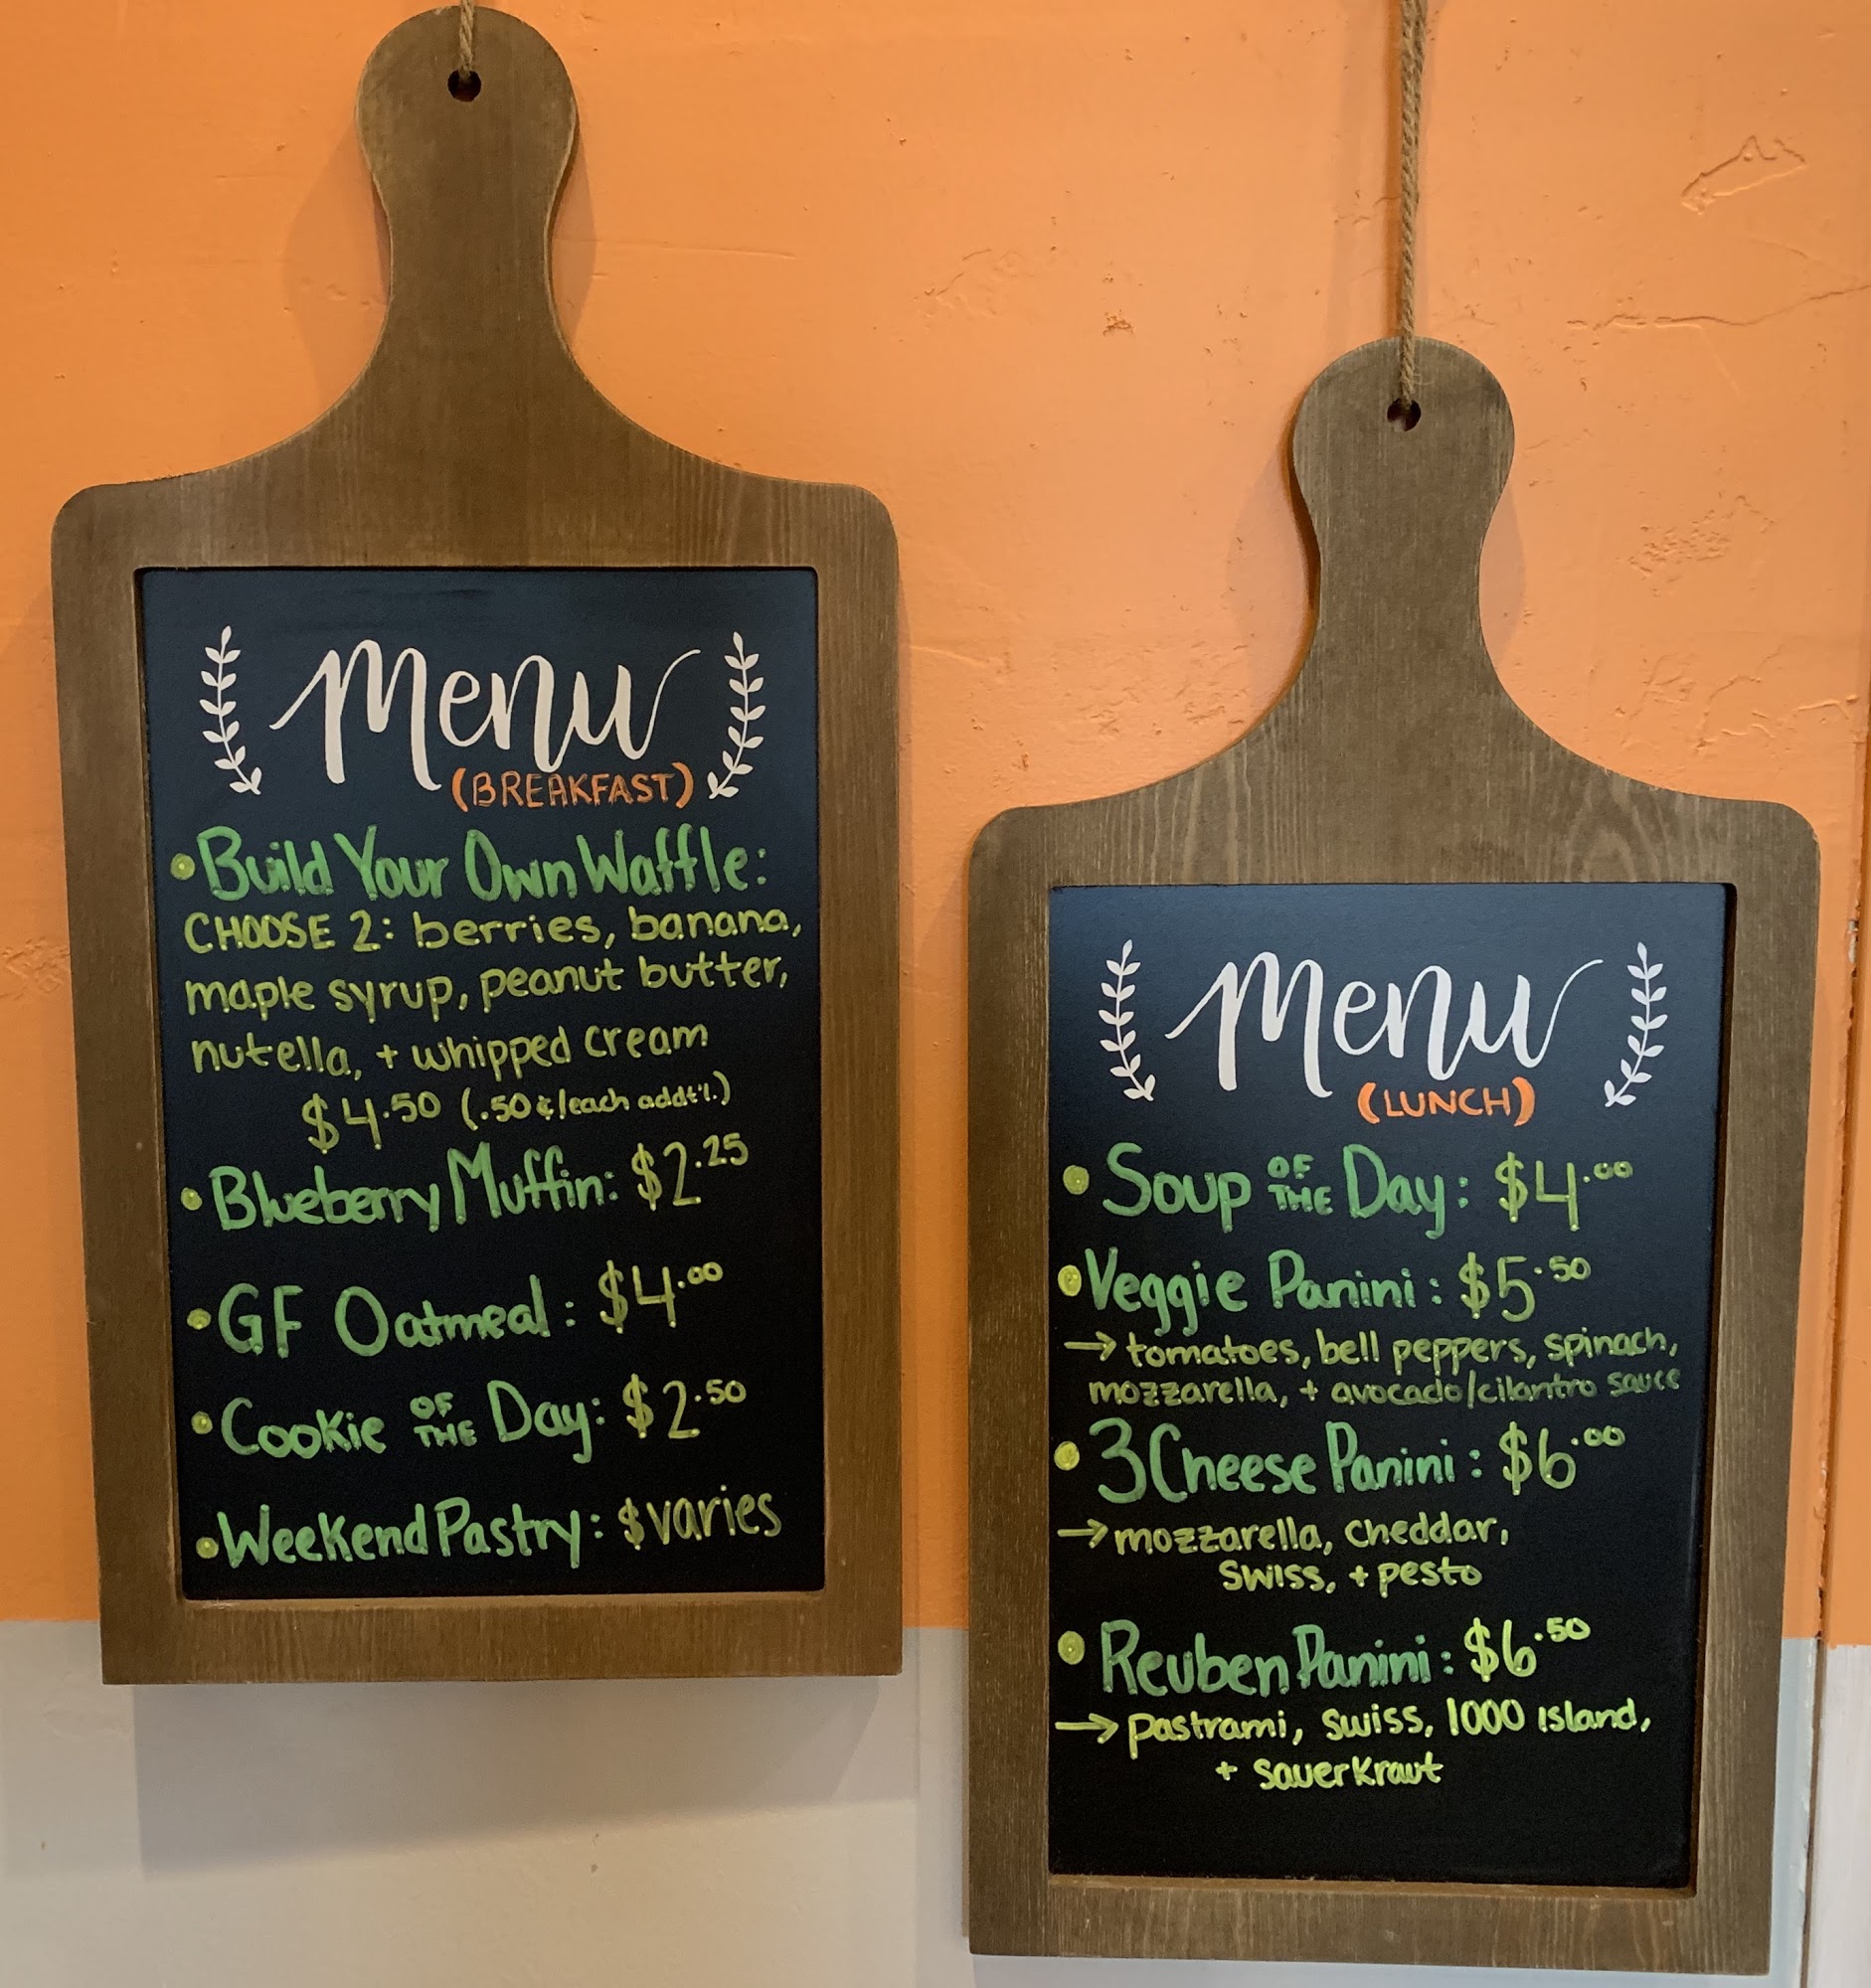 Menu
(BREAKFAST)
• Build Your Own Waffle:
CHOOSE 2: berries, banana,
maple syrup, peanut butter,
nutella, + whipped cream
$4.50 (.50¢/each addt'l.)
• Blueberry Muffin: $2.25
• GF Oatmeal: $4.00
• Cookie OF THE Day: $2.50
• Weekend Pastry: $varies
Menu
(LUNCH)
• Soup OF THE Day: $4.00
• Veggie Panini: $5.50
→ tomatoes, bell peppers, spinach,
mozzarella, + avocado/cilantro sauce
• 3 Cheese Panini: $6.00
→ mozzarella, cheddar,
swiss, + pesto
• Reuben Panini: $6.50
→ pastrami, swiss, 1000 island,
+ sauerkraut